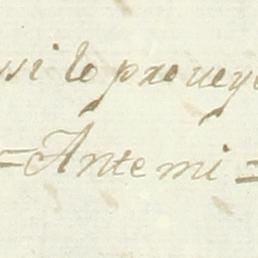 ssi lo proveye
=Antemi=